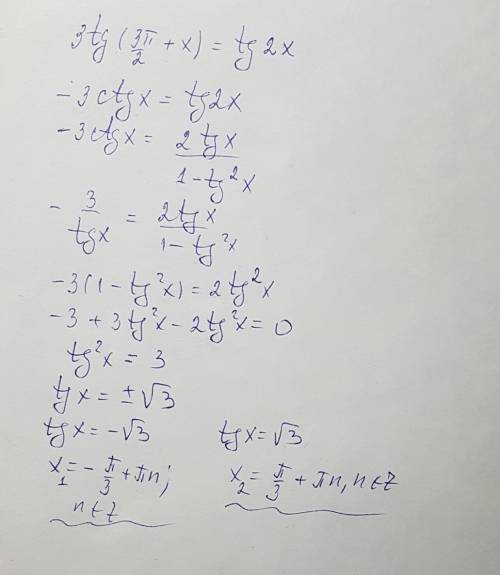 3tg(3π/2 + x) = tg2x
-3ctgx = tg2x
-3ctgx = 2tgx / 1-tg²x
-3/tgx = 2tgx / 1-tg²x
-3(1-tg²x) = 2tg²x
-3+3tg²x-2tg²x=0
tg²x = 3
tgx = ±√3
tgx = -√3 tgx = √3
x₁ = -π/3 + πn; x₂ = π/3 + πn, n∈z
n∈z